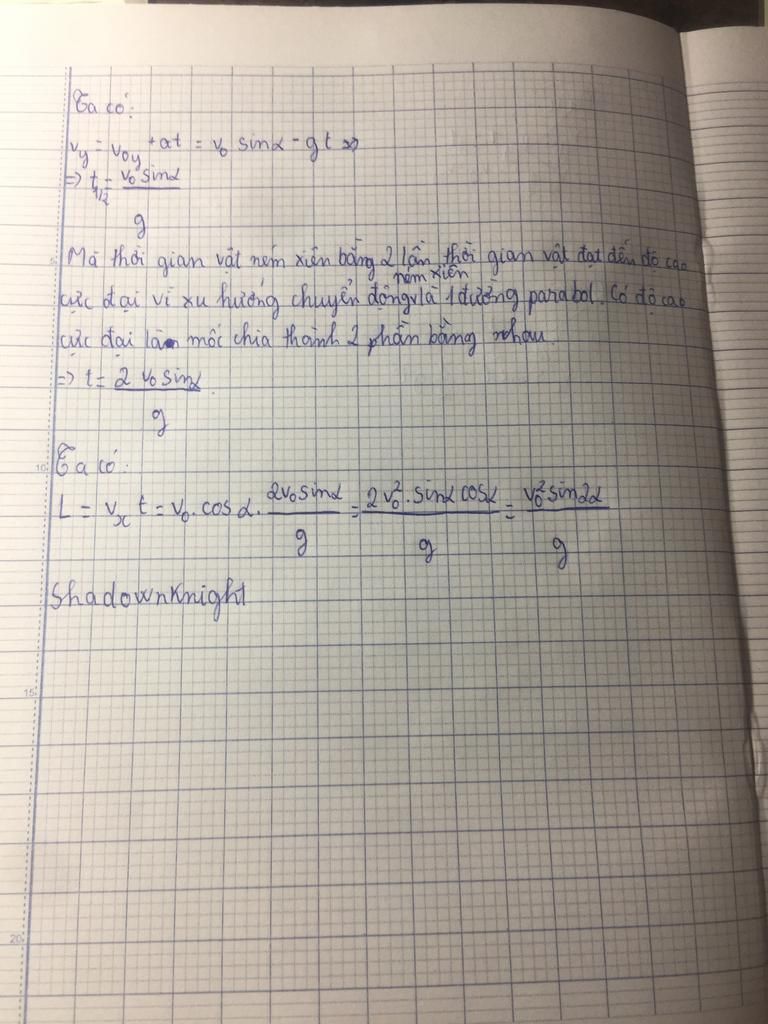 Ta có:
v_y = v_{0y} + at = v_0 sinα - gt ⇒
=> t_{1/2} = \frac{v_0 sinα}{g}
Mà thời gian vật ném xiên bằng 2 lần thời gian vật đạt đến độ cao
ném xiên
cực đại vì xu hướng chuyển động là 1 đường parabol. Có độ cao
cực đại là mốc chia thành 2 phần bằng nhau.
=> t = \frac{2 v_0 sinα}{g}
Ta có:
L = v_x t = v_0 . cos α . \frac{2v_0 sinα}{g} = \frac{2 v_0^2 . sinα cosα}{g} = \frac{v_0^2 sin2α}{g}
ShadownKnight
10
15
20